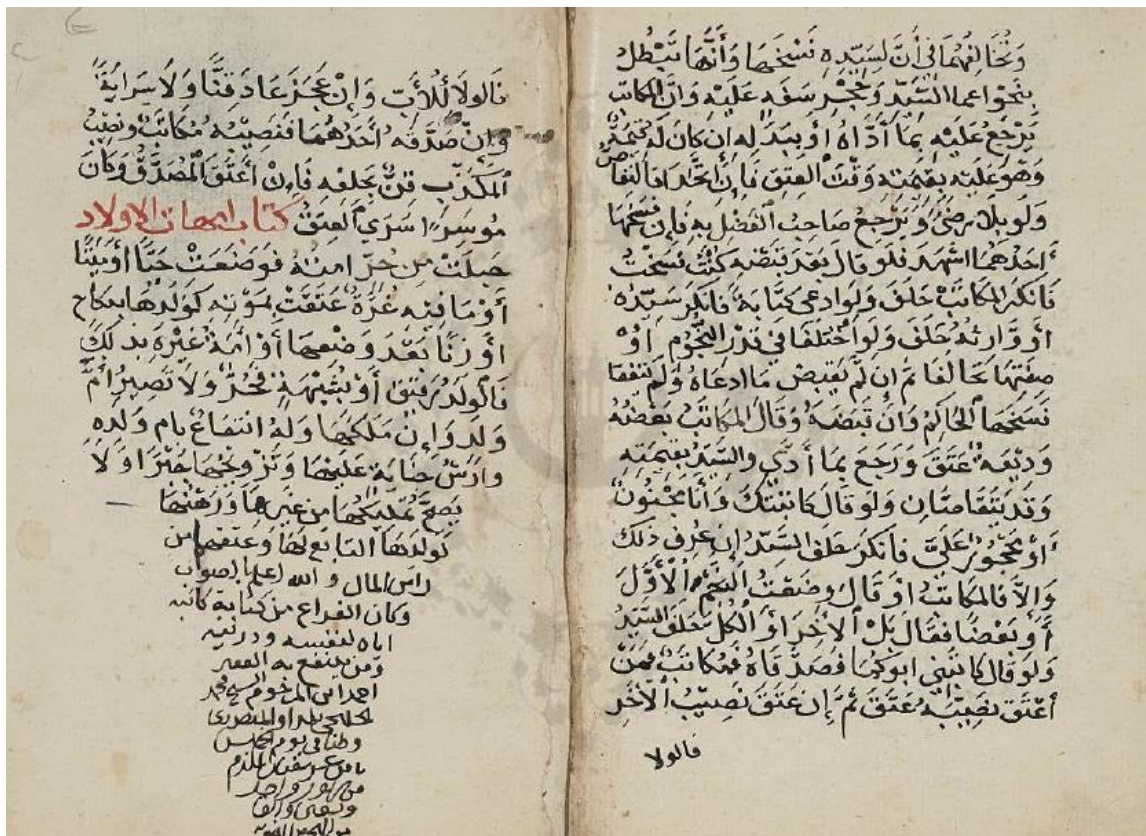 وتخالفهما في أن لسيده فسخها وأنها تبطل
بنحو اغماء السيد وحجر سفه عليه وان المكاتب
يرجع عليه بما أداه أو ببدله ان كان له قيمة
وهو عليه بقيمته وقت العتق فإن اتحدا فالتقاص
ولو بلا رضى ويرجع صاحب الفضل به فإن فسخها
أحدهما اشهد فلو قال بعد قبضه كنت فسخت
فانكر المكاتب حلف ولو ادعى كتابة فانكر سيده
أو وارثه حلف ولو اختلفا في قدر النجوم أو
صفتها تحالفا ثم إن لم يقبض ما ادعاه ولم يتفقا
فسخها الحاكم وان قبضه وقال المكاتب بعضه
وديعة عتق ورجع بما أدى والسيد بقيمته
وقد يتقاصان ولو قال كاتبتك وأنا مجنون
أو محجور علي فانكر حلف السيد إن عرف ذلك
وإلا فالمكاتب أو قال وضعت النجم الأول
أو بعضا فقال بل الآخر أو الكل حلف السيد
ولو قال كاتبني ابوكما فصدقاه فمكاتب فمن
أعتق نصيبه عتق ثم إن عتق نصيب الآخر
فالولا
فالولا للأب وإن عجز عاد قنا ولا سراية
وإن صدقه أحدهما فنصيبه مكاتب ونصيب
المكذب قن بحلفه فإن أعتق المصدق وكان
موسرا سرى العتق كتاب امهات الاولاد
حبلت من حر امته فوضعت حيا أو ميتا
أو ما فيه غرة عتقت بموته كولدها بنكاح
أو زنا بعد وضعها أو أمة غيره بذلك
فالولد رقيق أو بشبهة فحر ولا تصير أم
ولد وإن ملكها وله انتفاع بام ولده
وارش جناية عليها وتزويجها جبرا ولا
يصح تمليكها من غيرها ورهنها
كولدها التابع لها وعتقهما من
راس المال والله اعلم بالصواب
وكان الفراغ من كتابة كاتبه
اياه لنفسه وذريته
ومن ينتفع به الفقير
احمد ابن المرحوم الشيخ محمد
وطنا في يوم الخميس
من شهور واحد